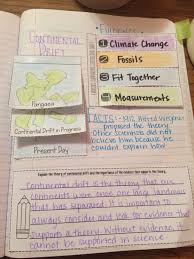 CONTINENTAL
DRIFT
Evidence
Climate Change
Fossils
Fit Together
Measurements
Pangaea
Continental Drift in Progress
Present Day
FACTS: -1912 Alfred Wegener
proposed the theory.
Other scientists did not
believe him because he
couldn't explain how
Explain the theory of continental drift and the importance of the evidence that supports the theory.
Continental drift is the theory that our
continents were once one large landmass
that has separated. It is important to
always consider and look for evidence that
supports a theory. Without evidence, it
cannot be supported in science.